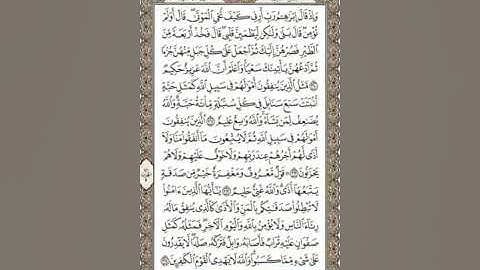 وَإِذْ قَالَ إِبْرَٰهِـۧمُ رَبِّ أَرِنِى كَيْفَ تُحْىِ ٱلْمَوْتَىٰ ۖ قَالَ أَوَلَمْ
تُؤْمِن ۖ قَالَ بَلَىٰ وَلَـٰكِن لِّيَطْمَئِنَّ قَلْبِى ۖ قَالَ فَخُذْ أَرْبَعَةً مِّنَ
ٱلطَّيْرِ فَصُرْهُنَّ إِلَيْكَ ثُمَّ ٱجْعَلْ عَلَىٰ كُلِّ جَبَلٍ مِّنْهُنَّ جُزْءًا
ثُمَّ ٱدْعُهُنَّ يَأْتِينَكَ سَعْيًا ۚ وَٱعْلَمْ أَنَّ ٱللَّهَ عَزِيزٌ حَكِيمٌ
۝٢٦٠ مَّثَلُ ٱلَّذِينَ يُنفِقُونَ أَمْوَٰلَهُمْ فِى سَبِيلِ ٱللَّهِ كَمَثَلِ حَبَّةٍ
أَنۢبَتَتْ سَبْعَ سَنَابِلَ فِى كُلِّ سُنۢبُلَةٍ مِّا۟ئَةُ حَبَّةٍ ۗ وَٱللَّهُ
يُضَـٰعِفُ لِمَن يَشَآءُ ۗ وَٱللَّهُ وَٰسِعٌ عَلِيمٌ ۝٢٦١ ٱلَّذِينَ يُنفِقُونَ
أَمْوَٰلَهُمْ فِى سَبِيلِ ٱللَّهِ ثُمَّ لَا يُتْبِعُونَ مَآ أَنفَقُوا۟ مَنًّا وَلَآ
أَذًى ۙ لَّهُمْ أَجْرُهُمْ عِندَ رَبِّهِمْ وَلَا خَوْفٌ عَلَيْهِمْ وَلَا هُمْ
يَحْزَنُونَ ۝٢٦٢ قَوْلٌ مَّعْرُوفٌ وَمَغْفِرَةٌ خَيْرٌ مِّن صَدَقَةٍ
يَتْبَعُهَآ أَذًى ۗ وَٱللَّهُ غَنِىٌّ حَلِيمٌ ۝٢٦٣ يَـٰٓأَيُّهَا ٱلَّذِينَ ءَامَنُوا۟
لَا تُبْطِلُوا۟ صَدَقَـٰتِكُم بِٱلْمَنِّ وَٱلْأَذَىٰ كَٱلَّذِى يُنفِقُ مَالَهُۥ
رِئَآءَ ٱلنَّاسِ وَلَا يُؤْمِنُ بِٱللَّهِ وَٱلْيَوْمِ ٱلْـَٔاخِرِ ۖ فَمَثَلُهُۥ كَمَثَلِ
صَفْوَانٍ عَلَيْهِ تُرَابٌ فَأَصَابَهُۥ وَابِلٌ فَتَرَكَهُۥ صَلْدًا ۖ لَّا يَقْدِرُونَ
عَلَىٰ شَىْءٍ مِّمَّا كَسَبُوا۟ ۗ وَٱللَّهُ لَا يَهْدِى ٱلْقَوْمَ ٱلْكَـٰفِرِينَ ۝٢٦٤